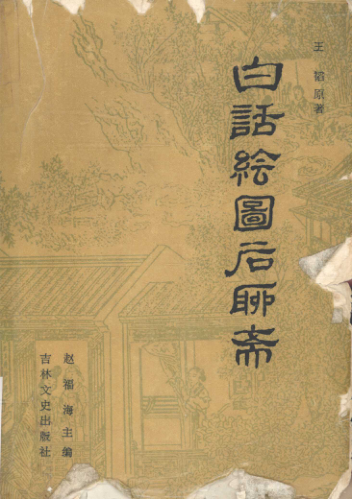 王韬原著
白話絵圖后聊斋
赵福海主编
吉林文史出版社